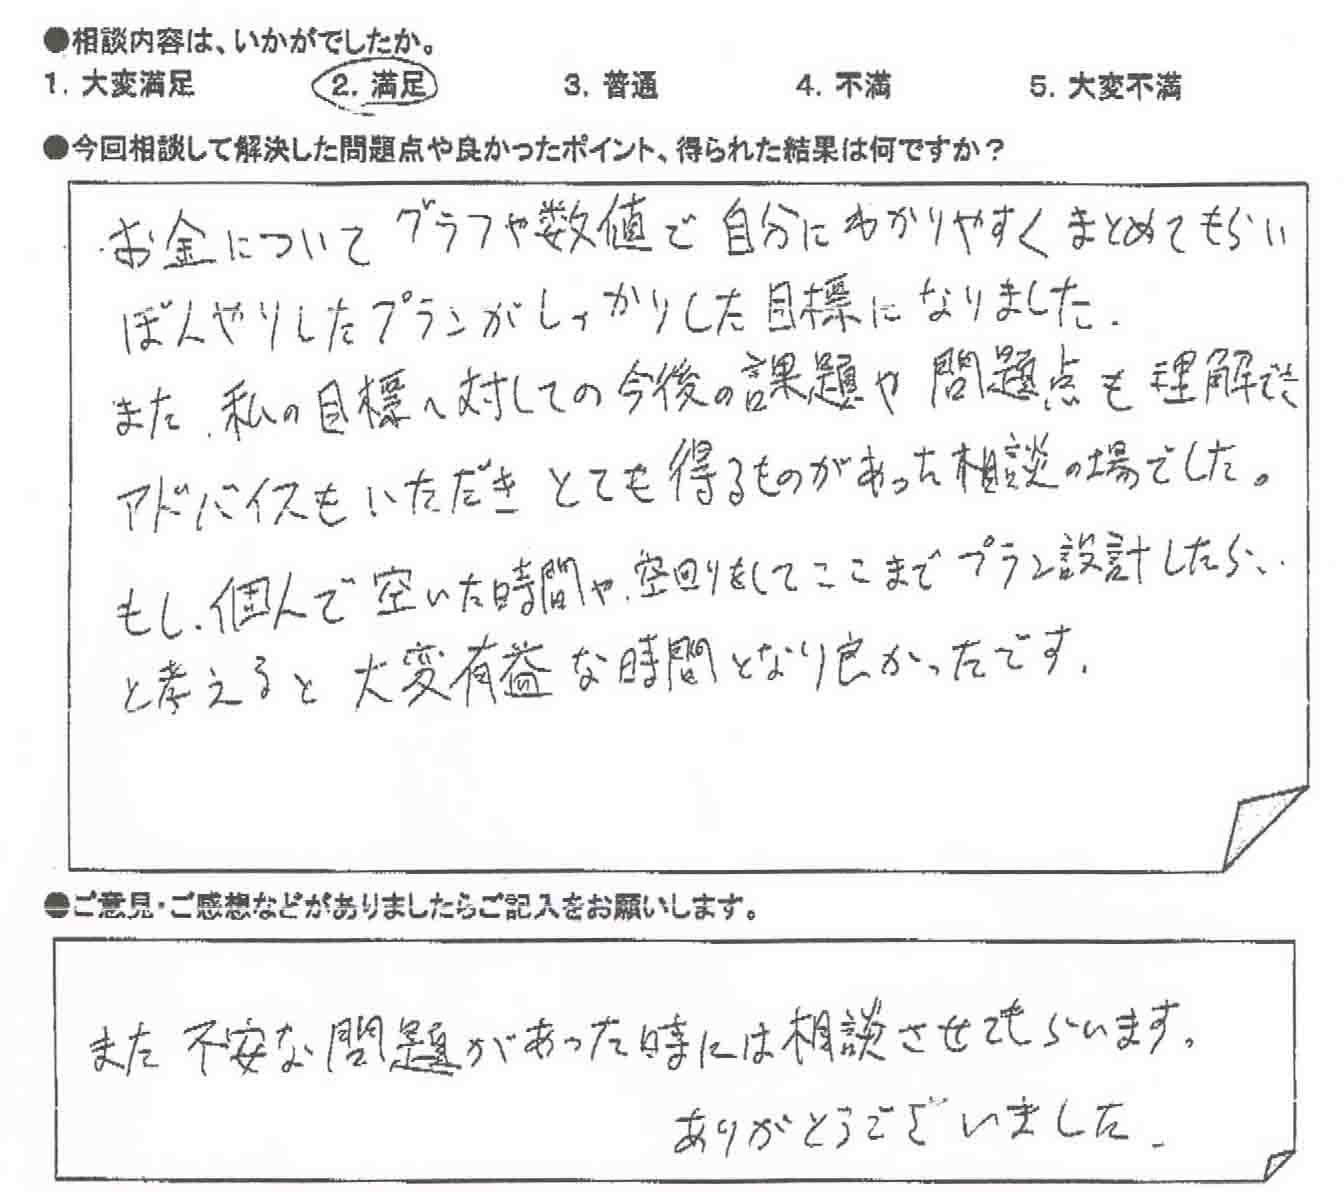 ●相談内容は、いかがでしたか。
1. 大変満足 2. 満足 3. 普通 4. 不満 5. 大変不満
●今回相談して解決した問題点や良かったポイント、得られた結果は何ですか？
お金について グラフや数値で 自分にわかりやすく まとめてもらい
ぼんやりしたプランがしっかりした目標になりました.
また、私の目標へ対しての今後の課題や 問題点も 理解でき
アドバイスもいただき とても 得るものがあった相談の場でした。
もし、個人で 空いた時間や、空回りをしてここまで プラン設計したら、、
と考えると 大変有益な時間となり良かったです.
●ご意見・ご感想などがありましたらご記入をお願いします。
また 不安な問題があった時には相談させてもらいます。
ありがとうございました.